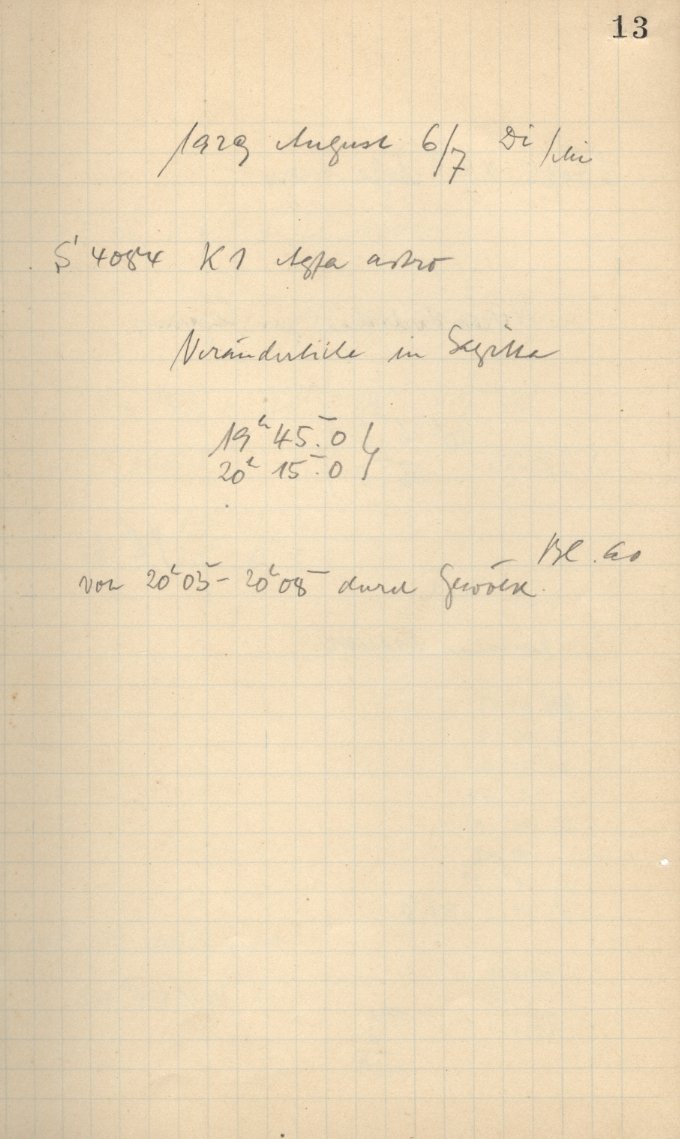 13
1929 August 6/7 Di/Mi
S 4084 K1 Agfa astro
Veränderliche in Sagitta
19ʰ 45ᵐ.0
20ʰ 15ᵐ.0
Bl. 60
von 20ʰ05ᵐ – 20ʰ08ᵐ durch Gewölk.